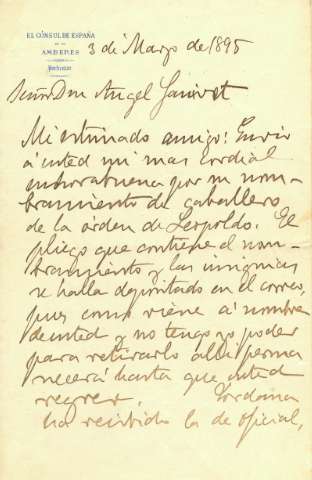 EL CÓNSUL DE ESPAÑA
EN
AMBERES
Particular
3 de Marzo de 1895
Señor Don Angel Ganivet
Mi estimado amigo: Envio
á usted mi mas cordial
enhorabuena por su nom-
bramiento de caballero
de la órden de Leopoldo. El
pliego que contiene el nom-
bramiento y las insignias
se halla depositado en el correo,
pues como viene á nombre
de usted y no tengo yo poder
para retirarlo alli perma
necerá hasta que usted
regrese.
ha recibido la de oficial,